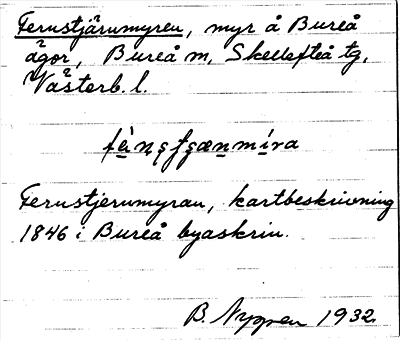 Fernstjärnmyren, myr å Bureå
ägor, Bureå m, Skellefteå tg,
Västerb. l.
Fernstjernmyran, kartbeskrivning
1846 i Bureå byaskrin.
B. Nygren 1932